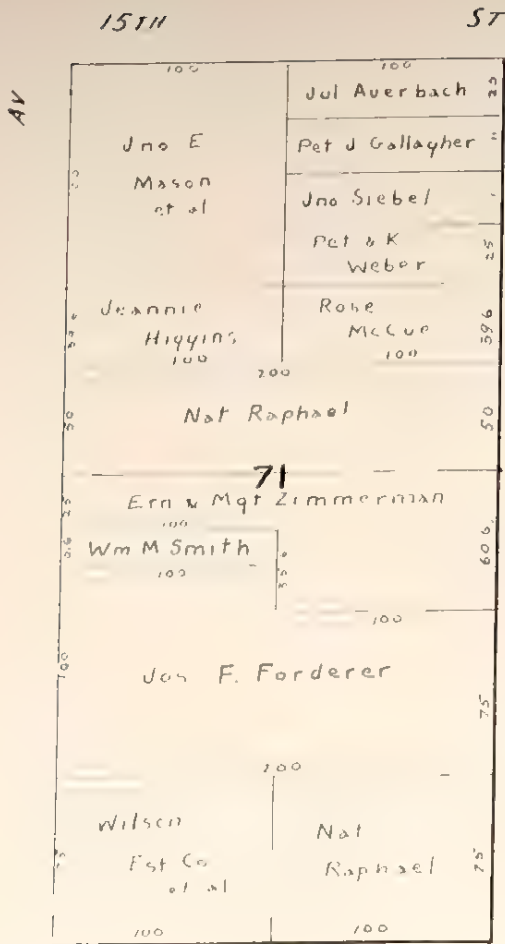 15TH ST
AV
100 100
Jul Auerbach 25
Jno E
Mason
et al
Pet J Gallagher "
Jno Siebel
Pet & K
Weber
25
Jeannie
Higgins
100
Rose
McCue
100
396
200
Nat Raphael
50 50
71
25
Ern & Mgt Zimmerman
100
Wm M Smith
100
606
100
100
Jos F. Forderer
75
200
Wilson
Est Co
et al
Nat
Raphael
75
100 100